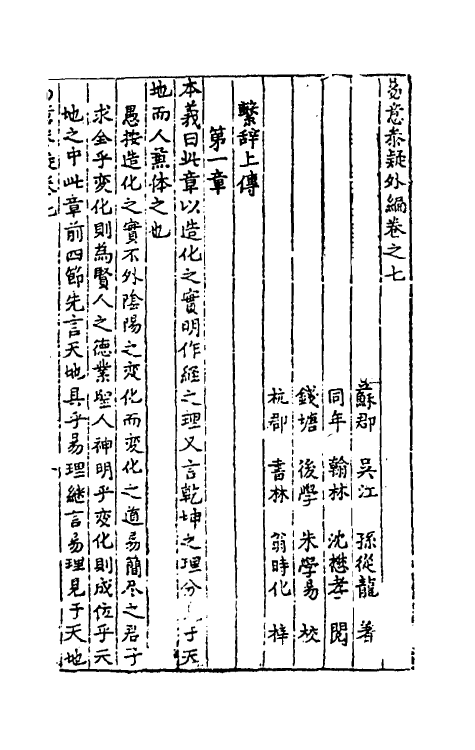 易意參疑外編卷之七
蘇郡 吳江 孫從龍 著
同年 翰林 沈懋孝 閱
錢塘 後學 朱學易 校
杭郡 書林 翁時化 梓
繫辭上傳
第一章
本義曰此章以造化之實明作經之理又言乾坤之理分 于天
地而人兼体之也
愚按造化之實不外陰陽之变化而变化之道易簡尽之君子
求全乎变化則為賢人之德業聖人神明乎变化則成位乎天
地之中此章前四節先言天地具乎易理継言易理見于天地